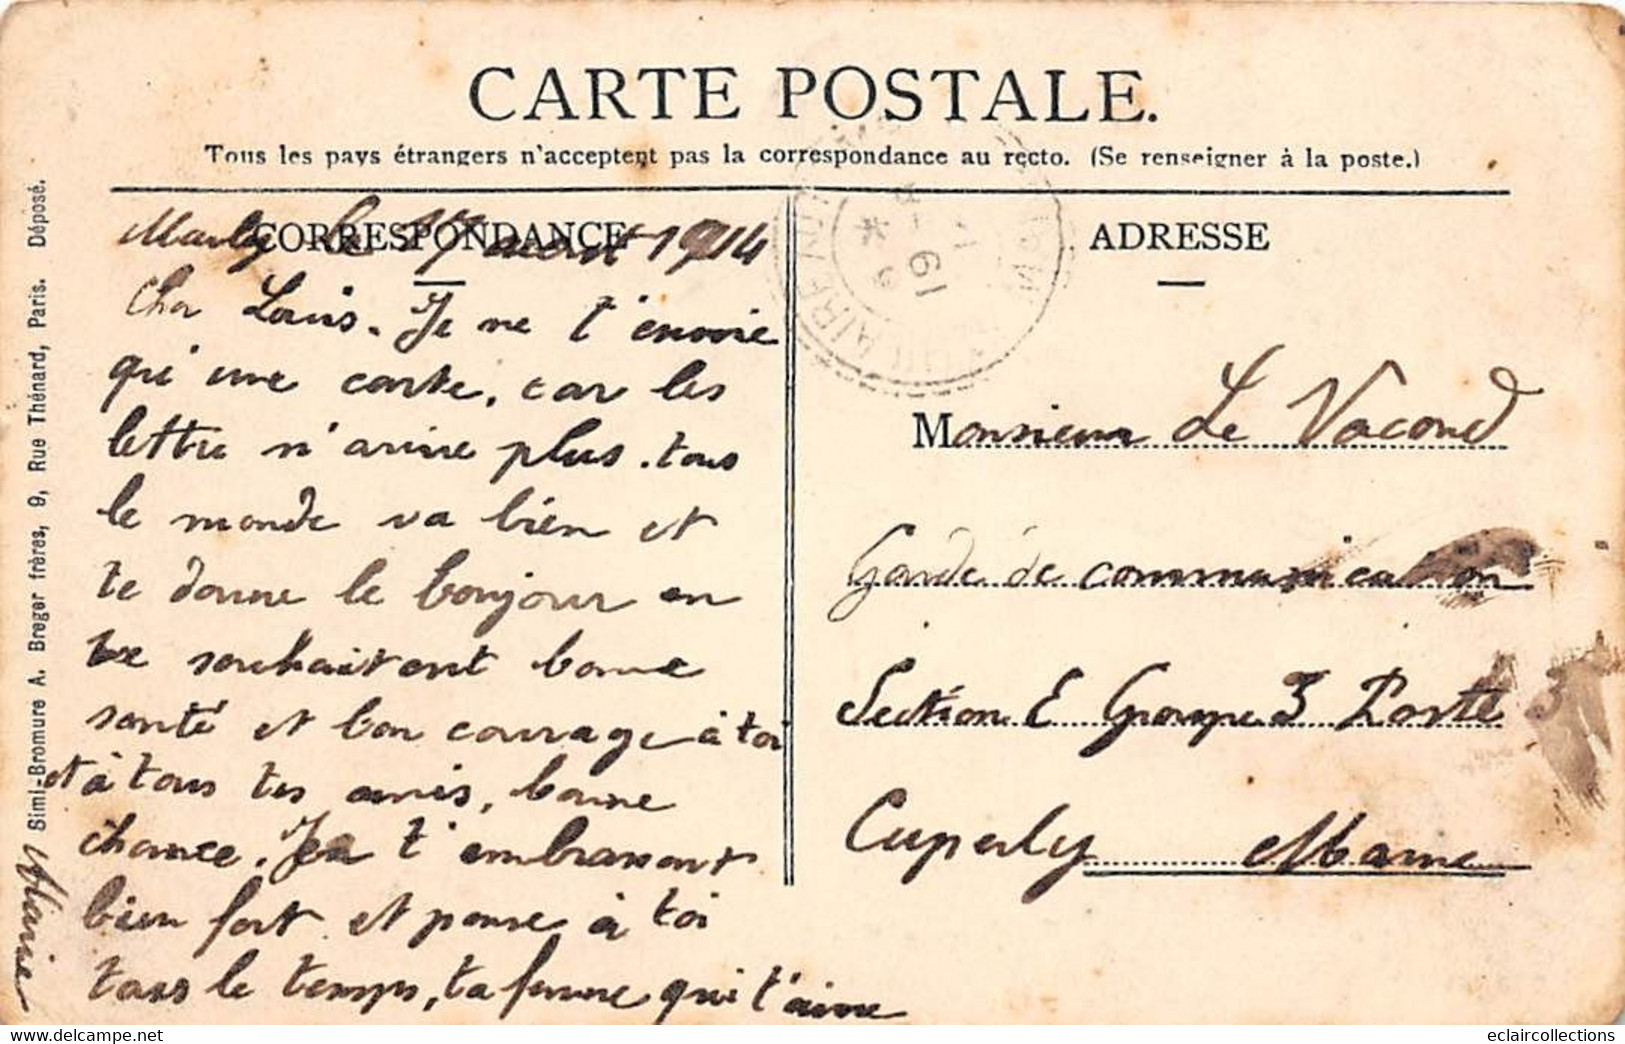 CARTE POSTALE.
Tous les pays étrangers n'acceptent pas la correspondance au recto. (Se renseigner à la poste.)
CORRESPONDANCE
Marly le 17 aout 1914
Cher Louis. Je ne t'envoie
qui une carte, car les
lettre n'arive plus. tous
le monde va bien et
te donne le bonjour en
te souhaitent bonne
santé et bon courage à toi
et à tous tes amis, bonne
chance. Je t'embrassant
bien fort et pense à toi
tous le temps, ta femme qui t'aime
Marie
ADRESSE
Monsieur Le Vacond
Garde de communication
Section E Groupe 3 Poste 3
Cuperly Marne
Simi-Bromure A. Breger frères, 9, Rue Thénard, Paris. Déposé.
eclaircollections